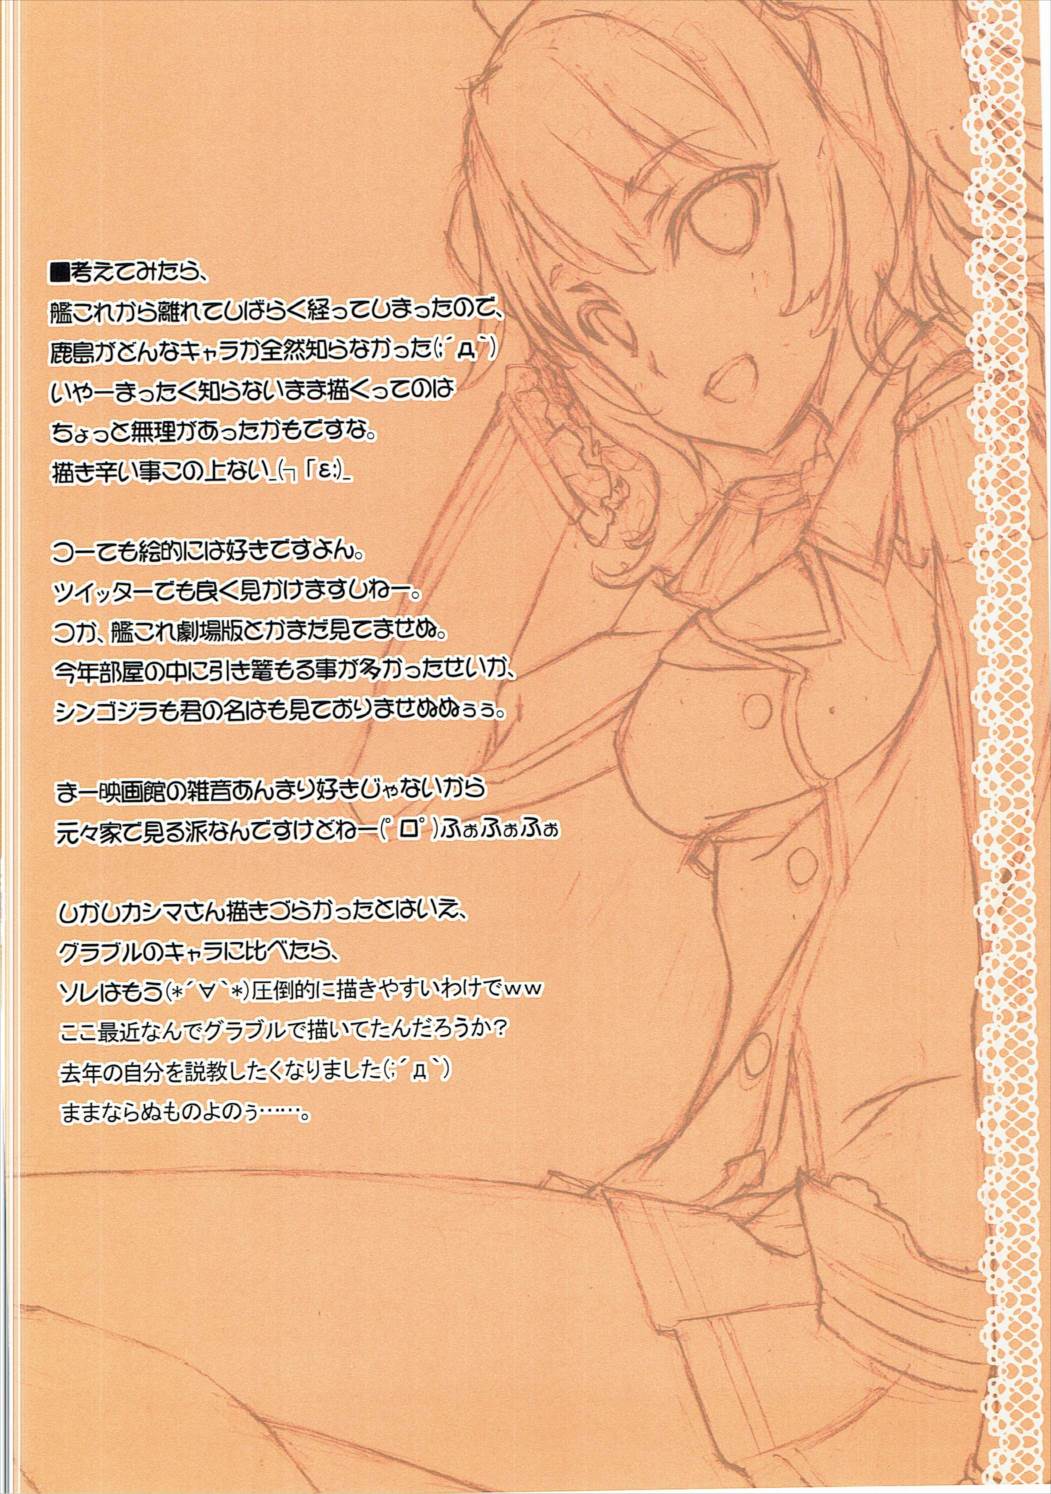 ■考えてみたら、
艦これから離れてしばらく経ってしまったので、
鹿島がどんなキャラか全然知らなかった(;´д`)
いやーまったく知らないまま描くってのは
ちょっと無理があったかもですな。
描き辛い事この上ない_(┐「ε;)_
つーても絵的には好きですよん。
ツイッターでも良く見かけますしねー。
つか、艦これ劇場版とかまだ見てませぬ。
今年部屋の中に引き篭もる事が多かったせいか、
シンゴジラも君の名はも見ておりませぬぬぅぅ。
まー映画館の雑音あんまり好きじゃないから
元々家で見る派なんですけどねー(ﾟロﾟ)ふぉふぉふぉ
しかしカシマさん描きづらかったとはいえ、
グラブルのキャラに比べたら、
ソレはもう(*´∀`*)圧倒的に描きやすいわけでｗｗ
ここ最近なんでグラブルで描いてたんだろうか？
去年の自分を説教したくなりました(;´д`)
ままならぬものよのぅ……。